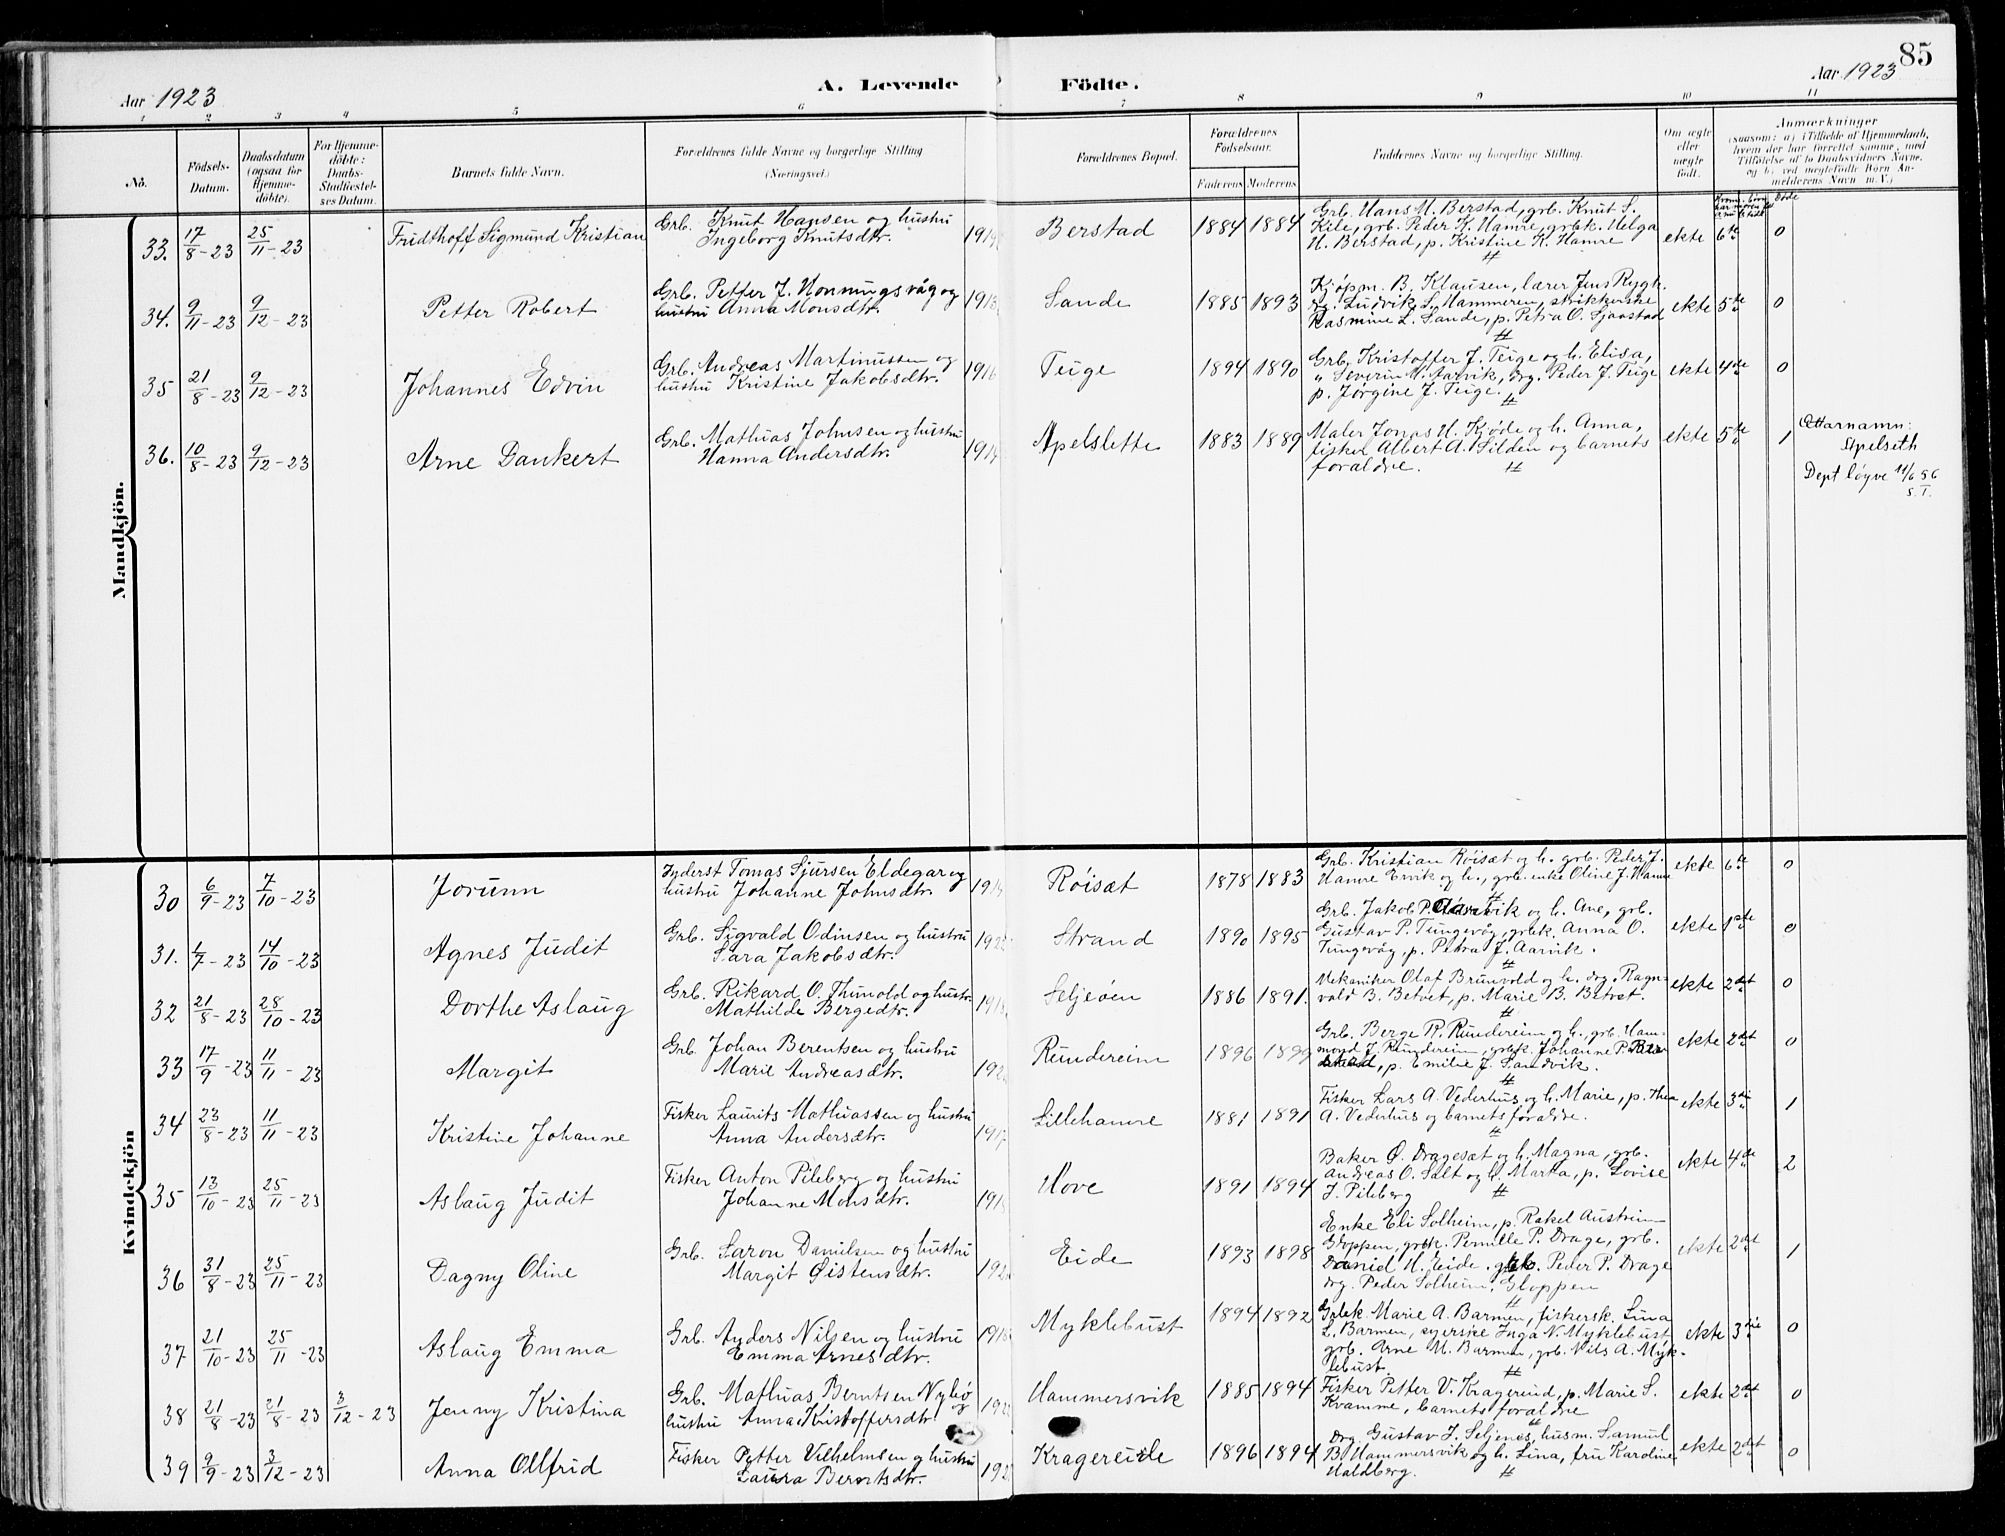 85
Aar 1923
A. Levende Födte.
Aar 1923
1 2 3 4 5 6 7 8 9 10 11
No.
Födsels-Datum.
Daabsdatum (ogsaa for Hjemmedöbte).
For Hjemmedöbte: Daabs-Stadfæstelses Datum.
Barnets fulde Navn.
Forældrenes fulde Navne og borgerlige Stilling
(Næringsvei.)
Forældrenes Bopæl.
Forældrenes Fødselsaar.
Faderens Moderens
Faddernes Navne og borgerlige Stilling.
Om ægte eller uægte födt.
Anmærkninger
(saasom: a) i Tilfælde af Hjemmedaab, hvem der har forrettet samme, med Tilføielse af to Daabsvidners Navne, og b) ved uægtefödte Börn Anmelderens Navn m.V.)
Mandkjön.
33. 17/8-23 25/11-23 Fridthoff Sigmund Kristian Grb. Knut Hansen og hustru
Ingeborg Knutsdtr. Berstad 1884 1884 Grb. Hans M. Berstad, grb. Knut S.
Kile, grb. Peder K. Hamre, grbk. Helga
H. Berstad, p. Kristine K. Hamre ekte 6te 0
34. 9/11-23 9/12-23 Petter Robert Grb. Petter J. Honningsvåg og
hustru Anna Monsdtr. 1913 Sande 1885 1893 Kjøpm. B. Klausen, lærer Jens Rygh.
drg. Ludvik S. Hammeren, strikkerske
Rasmine L. Sande, p. Petra O. Sjaastad ekte 5te 0
35 21/8-23 9/12-23 Johannes Edvin Grb. Andreas Martinussen og
hustru Kristine Jakobsdtr. 1916 Teige 1894 1890 Grb. Kristoffer J. Teige og h. Elisa,
" Severin H. Aarvik, drg. Peder J. Teige
p. Jørgine J. Teige. ekte 4de 0
36. 10/8-23 9/12-23 Arne Dankert Grb. Mathias Johnsen og hustru
Hanna Andersdtr. Apelslette 1883 1889 Maler Jonas H. Kjøde og h. Anna,
fisker Albert A. Silden og barnets
foraldre. ekte 5te 1 Ættarnamn:
Apelseth
Dept løyve 11/6 56
S.T.
Kvindekjön
30 6/9-23 7/10-23 Jorunn Inderst Tomas Sjursen Eldegar og
hustru Johanne Johnsdtr. Røisæt 1878 1883 Grb. Kristian Røisæt og h. grb. Peder J.
Hamre Ervik og h., grb. enke Oline J. Hamre ekte 6te 0
31. 1/7-23 14/10-23 Agnes Judit Grb. Sigvald Odinsen og hustru
Sara Jakobsdtr. Strand 1890 1895 Grb. Jakob P. Aarvik og h. Ane, grb.
Gustav P. Tungevåg, grbk. Anna O.
Tungevåg, p. Petra J. Aarvik. ekte 1ste 0
32 21/8-23 28/10-23 Dorthe Aslaug Grb. Rikard O. Thunold og hustr.
Mathilde Bergedtr. Seljeøen 1886 1891. Mekaniker Olaf Brunvold og h. drg. Ragn-
vald B. Betvet, p. Marie B. Betvet. ekte 2det 0
33 17/9-23 11/11-23 Margit Grb. Johan Berentsen og hustru
Marie Andreasdtr. Rundereim 1896 1899 Grb. Berge R. Rundereim og h. grb. Ham-
mond J. Rundereim, grbk. Johanne P. Ber
stad, p. Emilie J. Sandvik. ekte 2det 0
34 23/8-23 11/11-23 Kristine Johanne Fisker Laurits Mathiassen og hustru
Anna Andersdtr. 1917 Lillehamre 1881 1891 Fisker Lars A. Vederhus og h. Marie, p. Thea
A. Vederhus og barnets foraldre. ekte 3die 1
35 13/10-23 25/11-23 Aslaug Judit Fisker Anton Pileberg og hustru
Johanne Monsdtr. Hove 1891 1894 Baker Ø. Dragesæt og h. Magna, grb.
Andreas O. Salt og h. Marta, p. Lovise
J. Pileberg ekte 4de 2
36 31/8-23 25/11-23 Dagny Oline Grb. Saron Danielsen og hustru
Margit Øistensdtr. Eide 1893 1898 Enke Eli Solheim, p. Rakel Austrim
Gloppen, grbk. Pernille P. Drage, grb.
Daniel H. Eide. grb. Peder P. Drage
drg. Peder Solheim, Gloppen ekte 2det 1
37 21/10-23 25/11-23 Aslaug Emma Grb. Anders Nilsen og hustru
Emma Arnesdtr. Myklebust 1894 1892 Grbk Marie A. Barmen, fiskersk. Lina
L. Barmen, syerske Inga N. Myklebust
grb. Arne M. Barmen, grb. Nils A. Myk-
lebust. ekte 3die 0
38 21/8-23 21/8-23 3/12-23 Jenny Kristina Grb. Mathias Berntsen Nybø og
hustru Anna Kristoffersdtr. Hammersvik 1885 1894 Fisker Petter V. Kragereid, p. Marie S.
Kvamme, barnets foraldre ekte 2det 0
39 9/9-23 3/12-23 Anna Ollfrid Fisker Petter Vilhelmsen og hustru
Laura Berntsdtr. Kragereide 1896 1894 Drg. Gustav J. Seljenes, husm. Samuel
B. Hammersvik og h. Lina, fru Karoline
Haldberg. ekte 2det 0